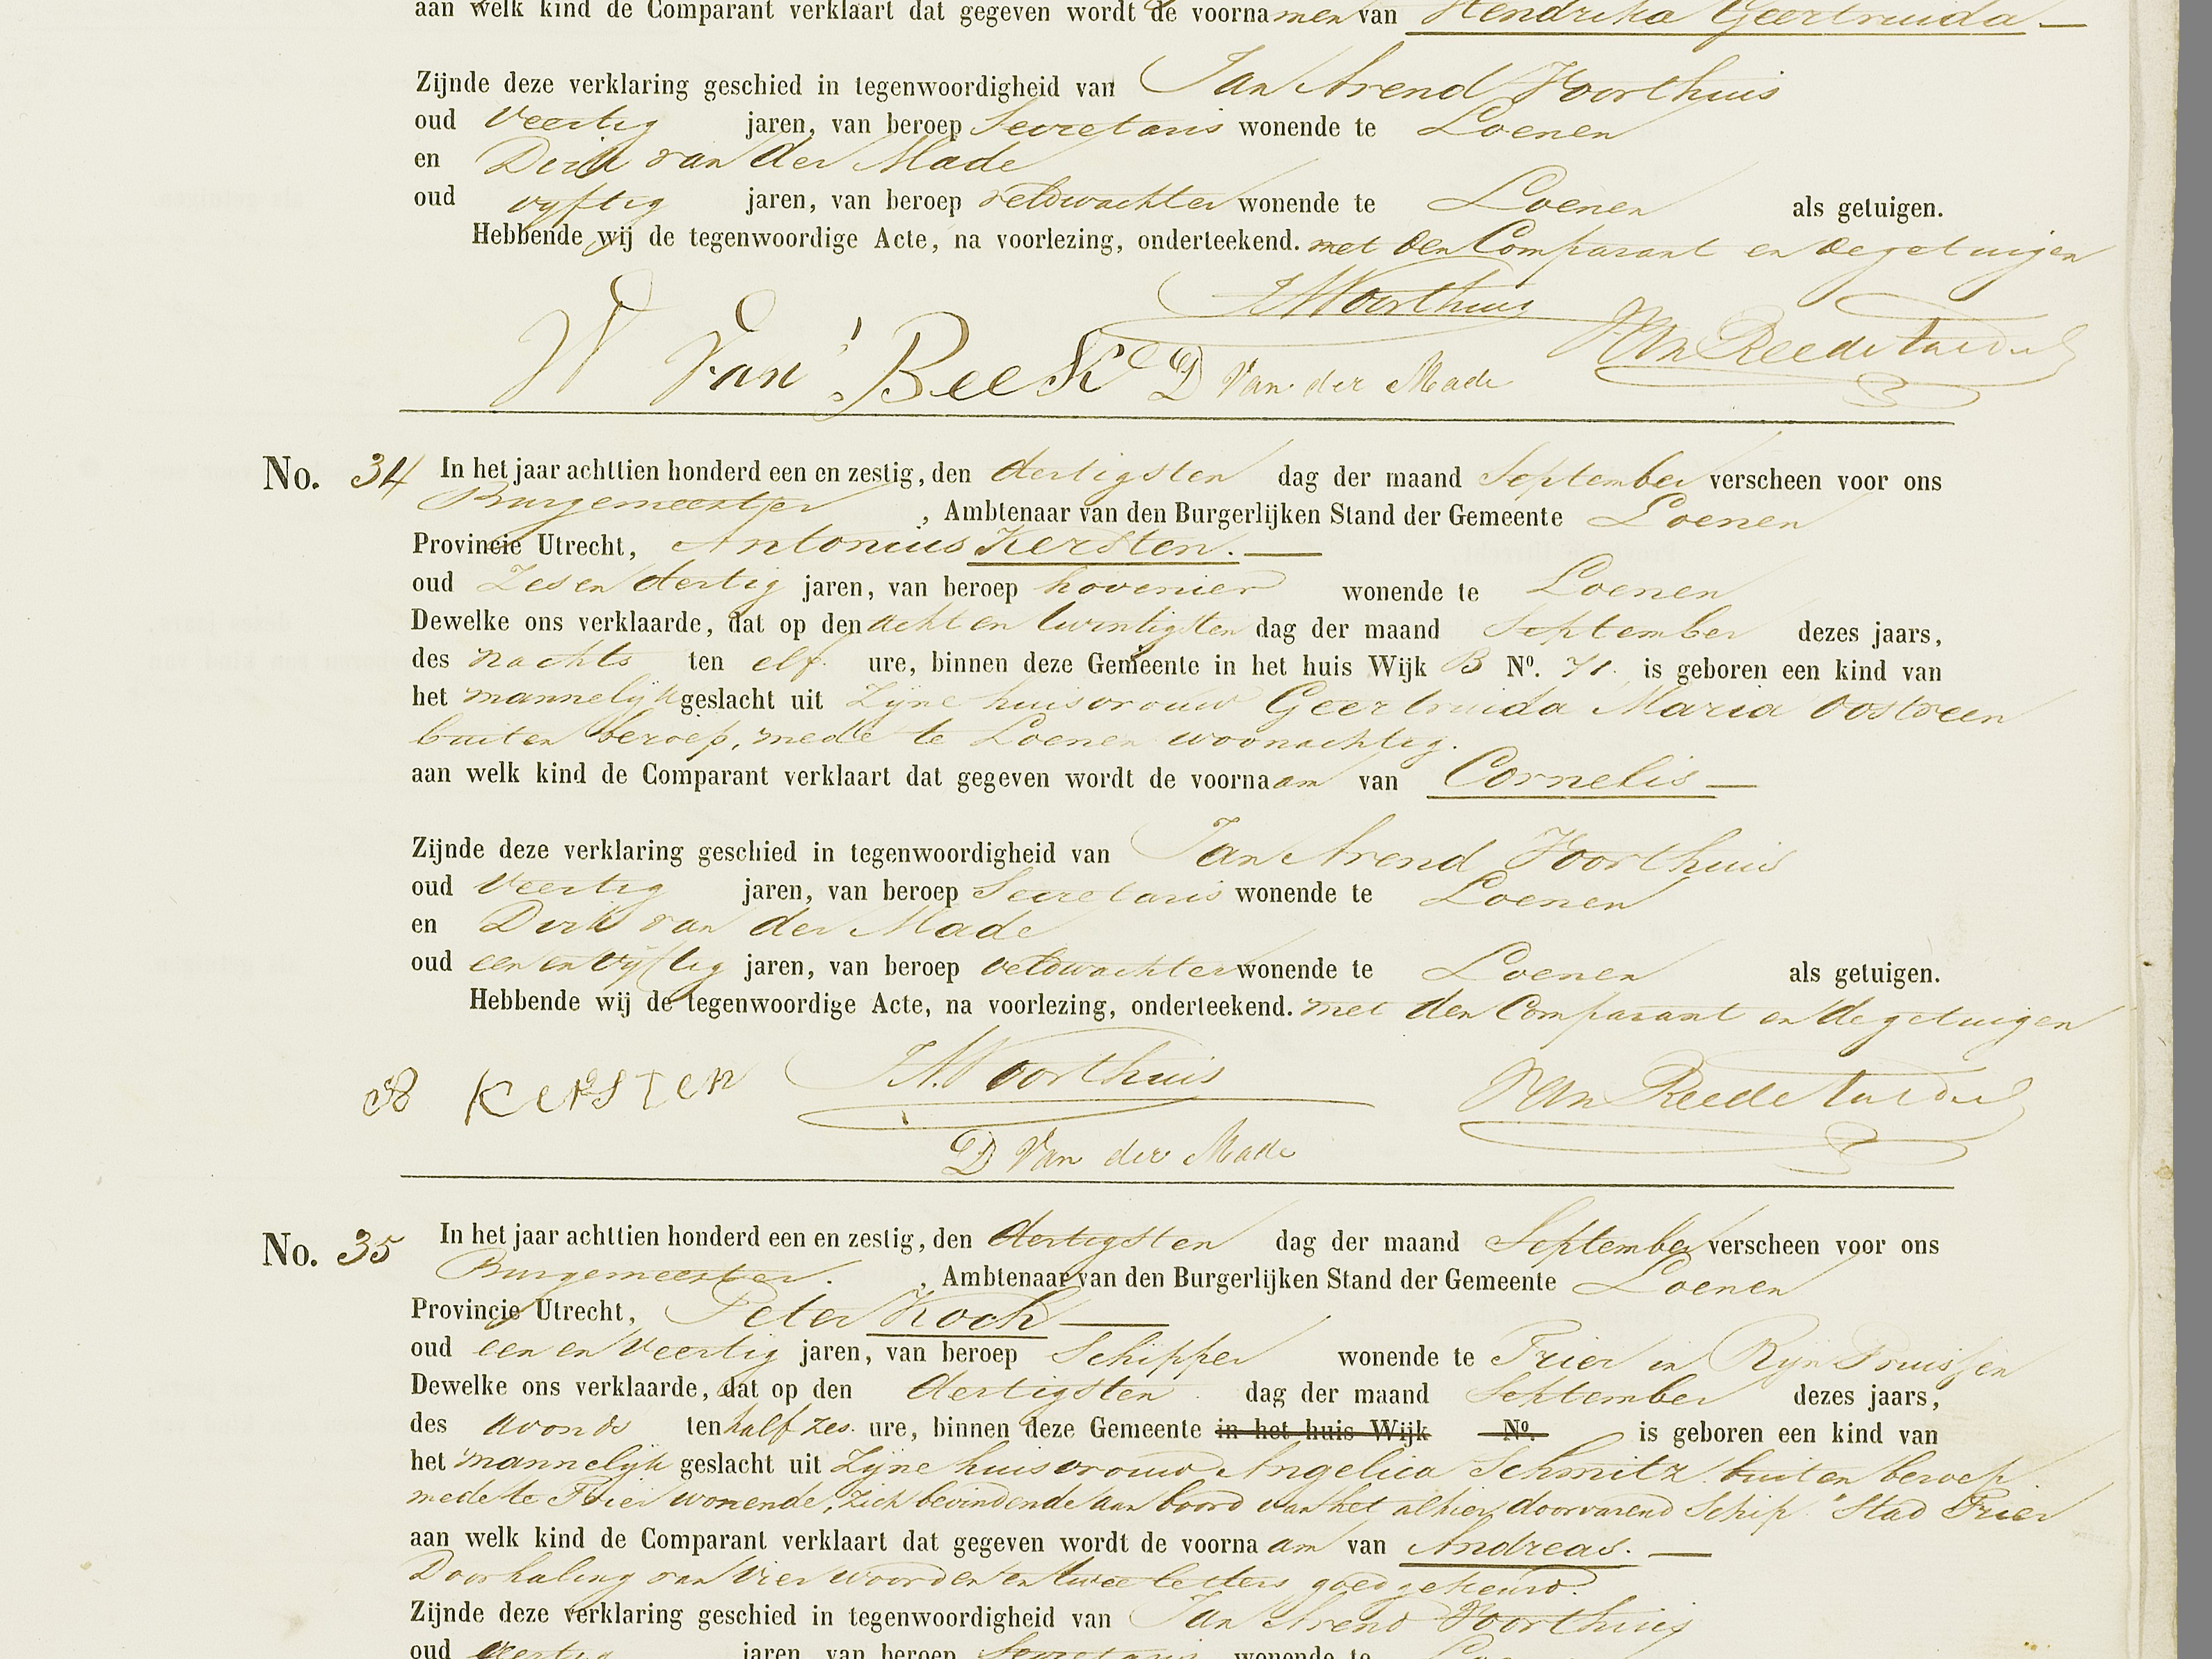 aan welk kind de Comparant verklaart dat gegeven wordt de voornamen van Hendrika Geertruida
Zijnde deze verklaring geschied in tegenwoordigheid van Jan Arend Voorthuis
oud Veertig jaren, van beroep Secretaris wonende te Loenen
en Dirk van der Made
oud vyftig jaren, van beroep veldwachter wonende te Loenen als getuigen.
Hebbende wij de tegenwoordige Acte, na voorlezing, onderteekend. met den Comparant en de getuigen
JAVoorthuis
W Van Beek D Van der Made Van Reede
No. 34 In het jaar achttien honderd een en zestig, den dertigsten dag der maand September verscheen voor ons
Burgemeester, Ambtenaar van den Burgerlijken Stand der Gemeente Loenen
Provincie Utrecht, Antonius Kersten.
oud Zes en dertig jaren, van beroep hovenier wonende te Loenen
Dewelke ons verklaarde, dat op den acht en twintigsten dag der maand September dezes jaars,
des nachts ten elf ure, binnen deze Gemeente in het huis Wijk B No. 71. is geboren een kind van
het mannelyk geslacht uit Zyne huisvrouw Geertruida Maria Oostveen
buiten beroep, mede te Loenen woonachtig.
aan welk kind de Comparant verklaart dat gegeven wordt de voornaam van Cornelis
Zijnde deze verklaring geschied in tegenwoordigheid van Jan Arend Voorthuis
oud Veertig jaren, van beroep Secretaris wonende te Loenen
en Dirk van der Made
oud een en vyftig jaren, van beroep veldwachter wonende te Loenen als getuigen.
Hebbende wij de tegenwoordige Acte, na voorlezing, onderteekend. met den Comparant en de getuigen
KERSTEN J.A.Voorthuis Van Reede
D Van der Made
No. 35 In het jaar achttien honderd een en zestig, den dertigsten dag der maand September verscheen voor ons
Burgemeester., Ambtenaar van den Burgerlijken Stand der Gemeente Loenen
Provincie Utrecht, Peter Koch
oud een en Veertig jaren, van beroep Schipper wonende te Trier in Ryn Pruissen
Dewelke ons verklaarde, dat op den dertigsten dag der maand September dezes jaars,
des avonds ten half zes. ure, binnen deze Gemeente in het huis Wijk No. is geboren een kind van
het mannelyk geslacht uit Zyne huisvrouw Angelica Schmitz buiten beroep
mede te Trier wonende, zich bevindende aan boord van het alhier doorvarend Schip "Stad Trier
aan welk kind de Comparant verklaart dat gegeven wordt de voornaam van Andreas.
Doorhaling van vier woorden en twee letters goedgekeurd.
Zijnde deze verklaring geschied in tegenwoordigheid van Jan Arend Voorthuis
oud Veertig jaren, van beroep Secretaris wonende te